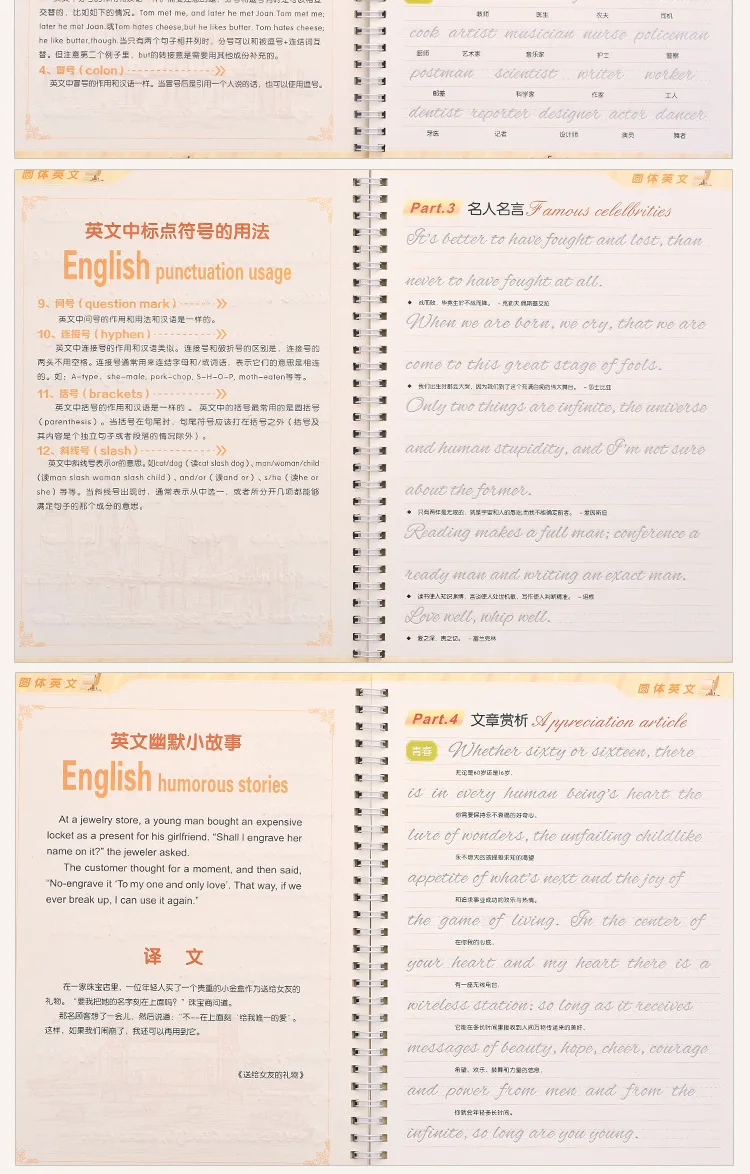 交替的，比如如下的情况。Tom met me, and later he met Joan.Tom met me;
later he met Joan.或Tom hates cheese,but he likes butter. Tom hates cheese;
he like butter,though.当只有两个句子相并列时，分号可以和被逗号+连结词互
替。但注意第二个例子里，but的转接意是需要用其他成份补充的。
4、冒号（colon）
英文中冒号的作用和汉语一样。当冒号后是引用一个人说的话，也可以使用逗号。
教师 医生 农夫 司机
cook artist musician nurse policeman
厨师 艺术家 音乐家 护士 警察
postman scientist writer worker
邮差 科学家 作家 工人
dentist reporter designer actor dancer
牙医 记者 设计师 演员 舞者
圆体英文
英文中标点符号的用法
English punctuation usage
9、问号（question mark）
英文中问号的作用和用法和汉语是一样的。
10、连接号（hyphen）
英文中连接号的作用和汉语类似。连接号和破折号的区别是，连接号的
两头不用空格。连接号通常用来连结字母和/或词语，表示它们的意思是相连
的。如：A-type, she-male, pork-chop, S-H-O-P, moth-eaten等等。
11、括号（brackets）
英文中括号的作用和汉语是一样的 。英文中的括号最常用的是圆括号
（parenthesis）。当括号在句尾时，句尾符号应该打在括号之外（括号及
其内容是个独立句子或者段落的情况除外）。
12、斜线号（slash）
英文中斜线号表示or的意思。如cat/dog（读cat slash dog）、man/woman/child
（读man slash woman slash child）、and/or（读and or）、s/he（读he or
she）等等。当斜线号出现时，通常表示从中选一，或者所分开几项都能够
满足句子的那个成分的意思。
圆体英文
Part.3 名人名言 Famous celelbrities
It's better to have fought and lost, than
never to have fought at all.
战而败，毕竟生於不战而降。
When we are born, we cry, that we are
come to this great stage of fools.
－莎士比亚
Only two things are infinite, the universe
and human stupidity, and I'm not sure
about the former.
－爱因斯坦
Reading makes a full man; conference a
ready man and writing an exact man.
－培根
Love well, whip well.
爱之深，责之切。－富兰克林
圆体英文
英文幽默小故事
English humorous stories
At a jewelry store, a young man bought an expensive
locket as a present for his girlfriend. “Shall I engrave her
name on it?” the jeweler asked.
The customer thought for a moment, and then said,
“No-engrave it ‘To my one and only love’. That way, if we
ever break up, I can use it again.”
译 文
在一家珠宝店里，一位年轻人买了一个贵重的小金盒作为送给女友的
礼物。“要我把她的名字刻在上面吗？”珠宝商问道。
那名顾客想了一会儿，然后说道：“不--在上面刻‘给我唯一的爱’。
这样，如果我们闹崩了，我还可以再用到它。
《送给女友的礼物》
圆体英文
Part.4 文章赏析 Appreciation article
青春 Whether sixty or sixteen, there
无论是60岁还是16岁，
is in every human being's heart the
你需要保持永不衰竭的好奇心、
lure of wonders, the unfailing childlike
永不熄灭的孩提般求知的渴望
appetite of what's next and the joy of
和追求事业成功的欢乐与热情。
the game of living. In the center of
在你我的心底，
your heart and my heart there is a
有一座无线电台，
wireless station: so long as it receives
messages of beauty, hope, cheer, courage
希望、欢乐、鼓舞和力量的信息，
and power from men and from the
你就会年轻多长时间。
infinite, so long are you young.